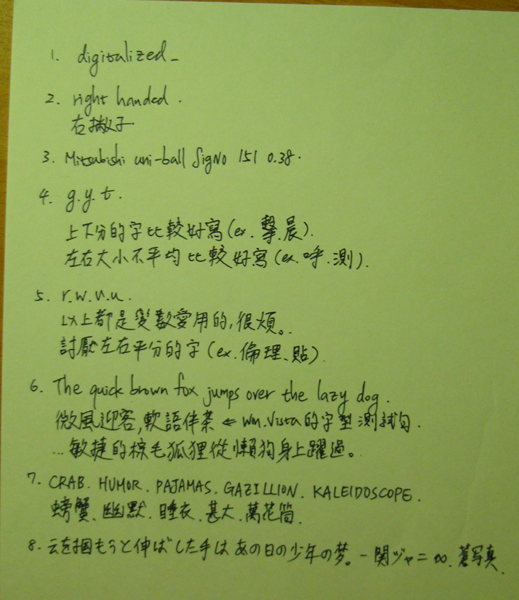 1. digitalized_
2. right handed.
右撇子
3. Mitsubishi uni-ball SigNo 151 0.38.
4. g.y.t.
上下分的字比較好寫(ex. 擊.晨).
左右大小不平均比較好寫(ex.呼.測).
5. r.w.v.u.
以上都是變數愛用的,很煩。
討厭左右平分的字(ex.倫理.貼)
6. The quick brown fox jumps over the lazy dog.
微風迎客,軟語伴茶 ← Win.Vista的字型測試句
...敏捷的棕毛狐狸從懶狗身上躍過。
7. CRAB. HUMOR. PAJAMAS. GAZILLION. KALEIDOSCOPE.
螃蟹、幽默、睡衣、甚大、萬花筒.
8. 云を掴もうと伸ばした手はあの日の少年の夢。-関ジャニ∞.蒼写真